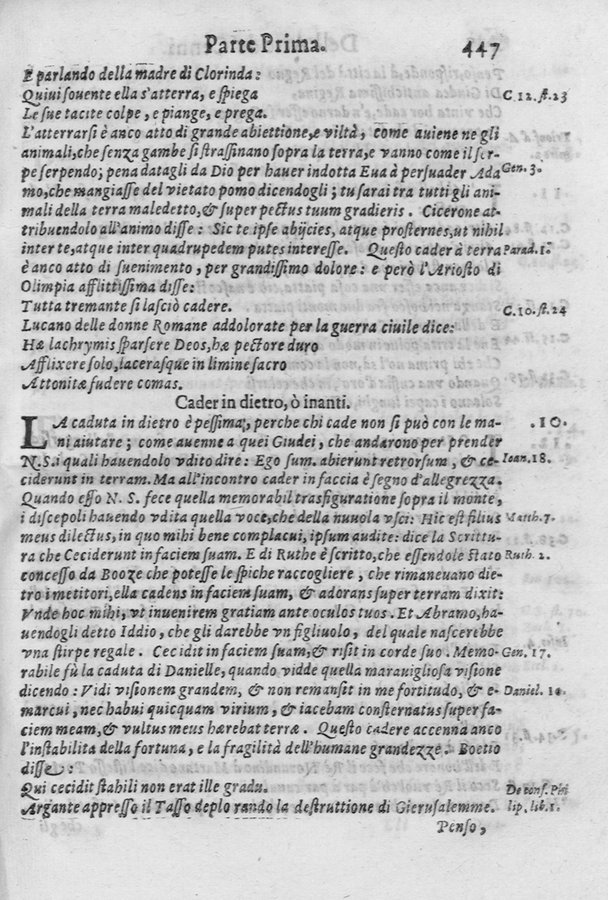 Parte Prima. 447
E parlando della madre di Clorinda:
Quiui souente ella s'atterra, e spiega C. 12. st. 23
Le sue tacite colpe, e piange, e prega.
L'atterrarsi è anco atto di grande abiettione, e viltà, come auiene ne gli
animali, che senza gambe si strassinano sopra la terra, e vanno come il ser-
pe serpendo; pena datagli da Dio per hauer indotta Eua à persuader Ada Gen. 3.
mo, che mangiasse del vietato pomo dicendogli; tu sarai tra tutti gli ani-
mali della terra maledetto, & super pectus tuum gradieris. Cicerone at-
tribuendolo all'animo disse: Sic te ipse abijcies, atque prosternes, ut nihil
inter te, atque inter quadrupedem putes interesse. Questo cader à terra Parad. 1.
è anco atto di suenimento, per grandissimo dolore: e però l'Ariosto di
Olimpia afflittissima disse:
Tutta tremante si lasciò cadere. C. 10. st. 24
Lucano delle donne Romane addolorate per la guerra ciuile dice:
Hæ lachrymis sparsere Deos, hæ pectore duro
Afflixere solo, lacerasque in limine sacro
Attonitæ fudere comas.
Cader in dietro, ò inanti.
LA caduta in dietro è pessima, perche chi cade non si può con le ma- .10.
ni aiutare; come auenne a quei Giudei, che andarono per prender
N.S. i quali hauendolo vdito dire: Ego sum. abierunt retrorsum, & ce- Ioan. 18.
ciderunt in terram. Ma all'incontro cader in faccia è segno d'allegrezza.
Quando esso N. S. fece quella memorabil trasfiguratione sopra il monte,
i discepoli hauendo vdita quella voce, che della nuuola vscì: Hic est filius Matth. 7.
meus dilectus, in quo mihi bene complacui, ipsum audite: dice la Scrittu-
ra che Ceciderunt in faciem suam. E di Ruthe è scritto, che essendole stato Ruth. 2.
concesso da Booze che potesse le spiche raccogliere, che rimaneuano die-
tro i metitori, ella cadens in faciem suam, & adorans super terram dixit:
Vnde hoc mihi, vt inuenirem gratiam ante oculos tuos. Et Abramo, ha-
uendogli detto Iddio, che gli darebbe vn figliuolo, del quale nascerebbe
vna stirpe regale. Cecidit in faciem suam, & risit in corde suo. Memo- Gen. 17.
rabile fù la caduta di Danielle, quando vidde quella marauigliosa visione
dicendo: Vidi visionem grandem, & non remansit in me fortitudo, & e- Daniel. 10.
marcui, nec habui quicquam virium, & iacebam consternatus super fa-
ciem meam, & vultus meus hærebat terræ. Questo cadere accenna anco
l'instabilità della fortuna, e la fragilità dell'humane grandezze. Boetio
disse:
Qui cecidit stabili non erat ille gradu. De cons. Phi
Argante appresso il Tasso deplo rando la destruttione di Gierusalemme. lip. lib. 1.
Penso,